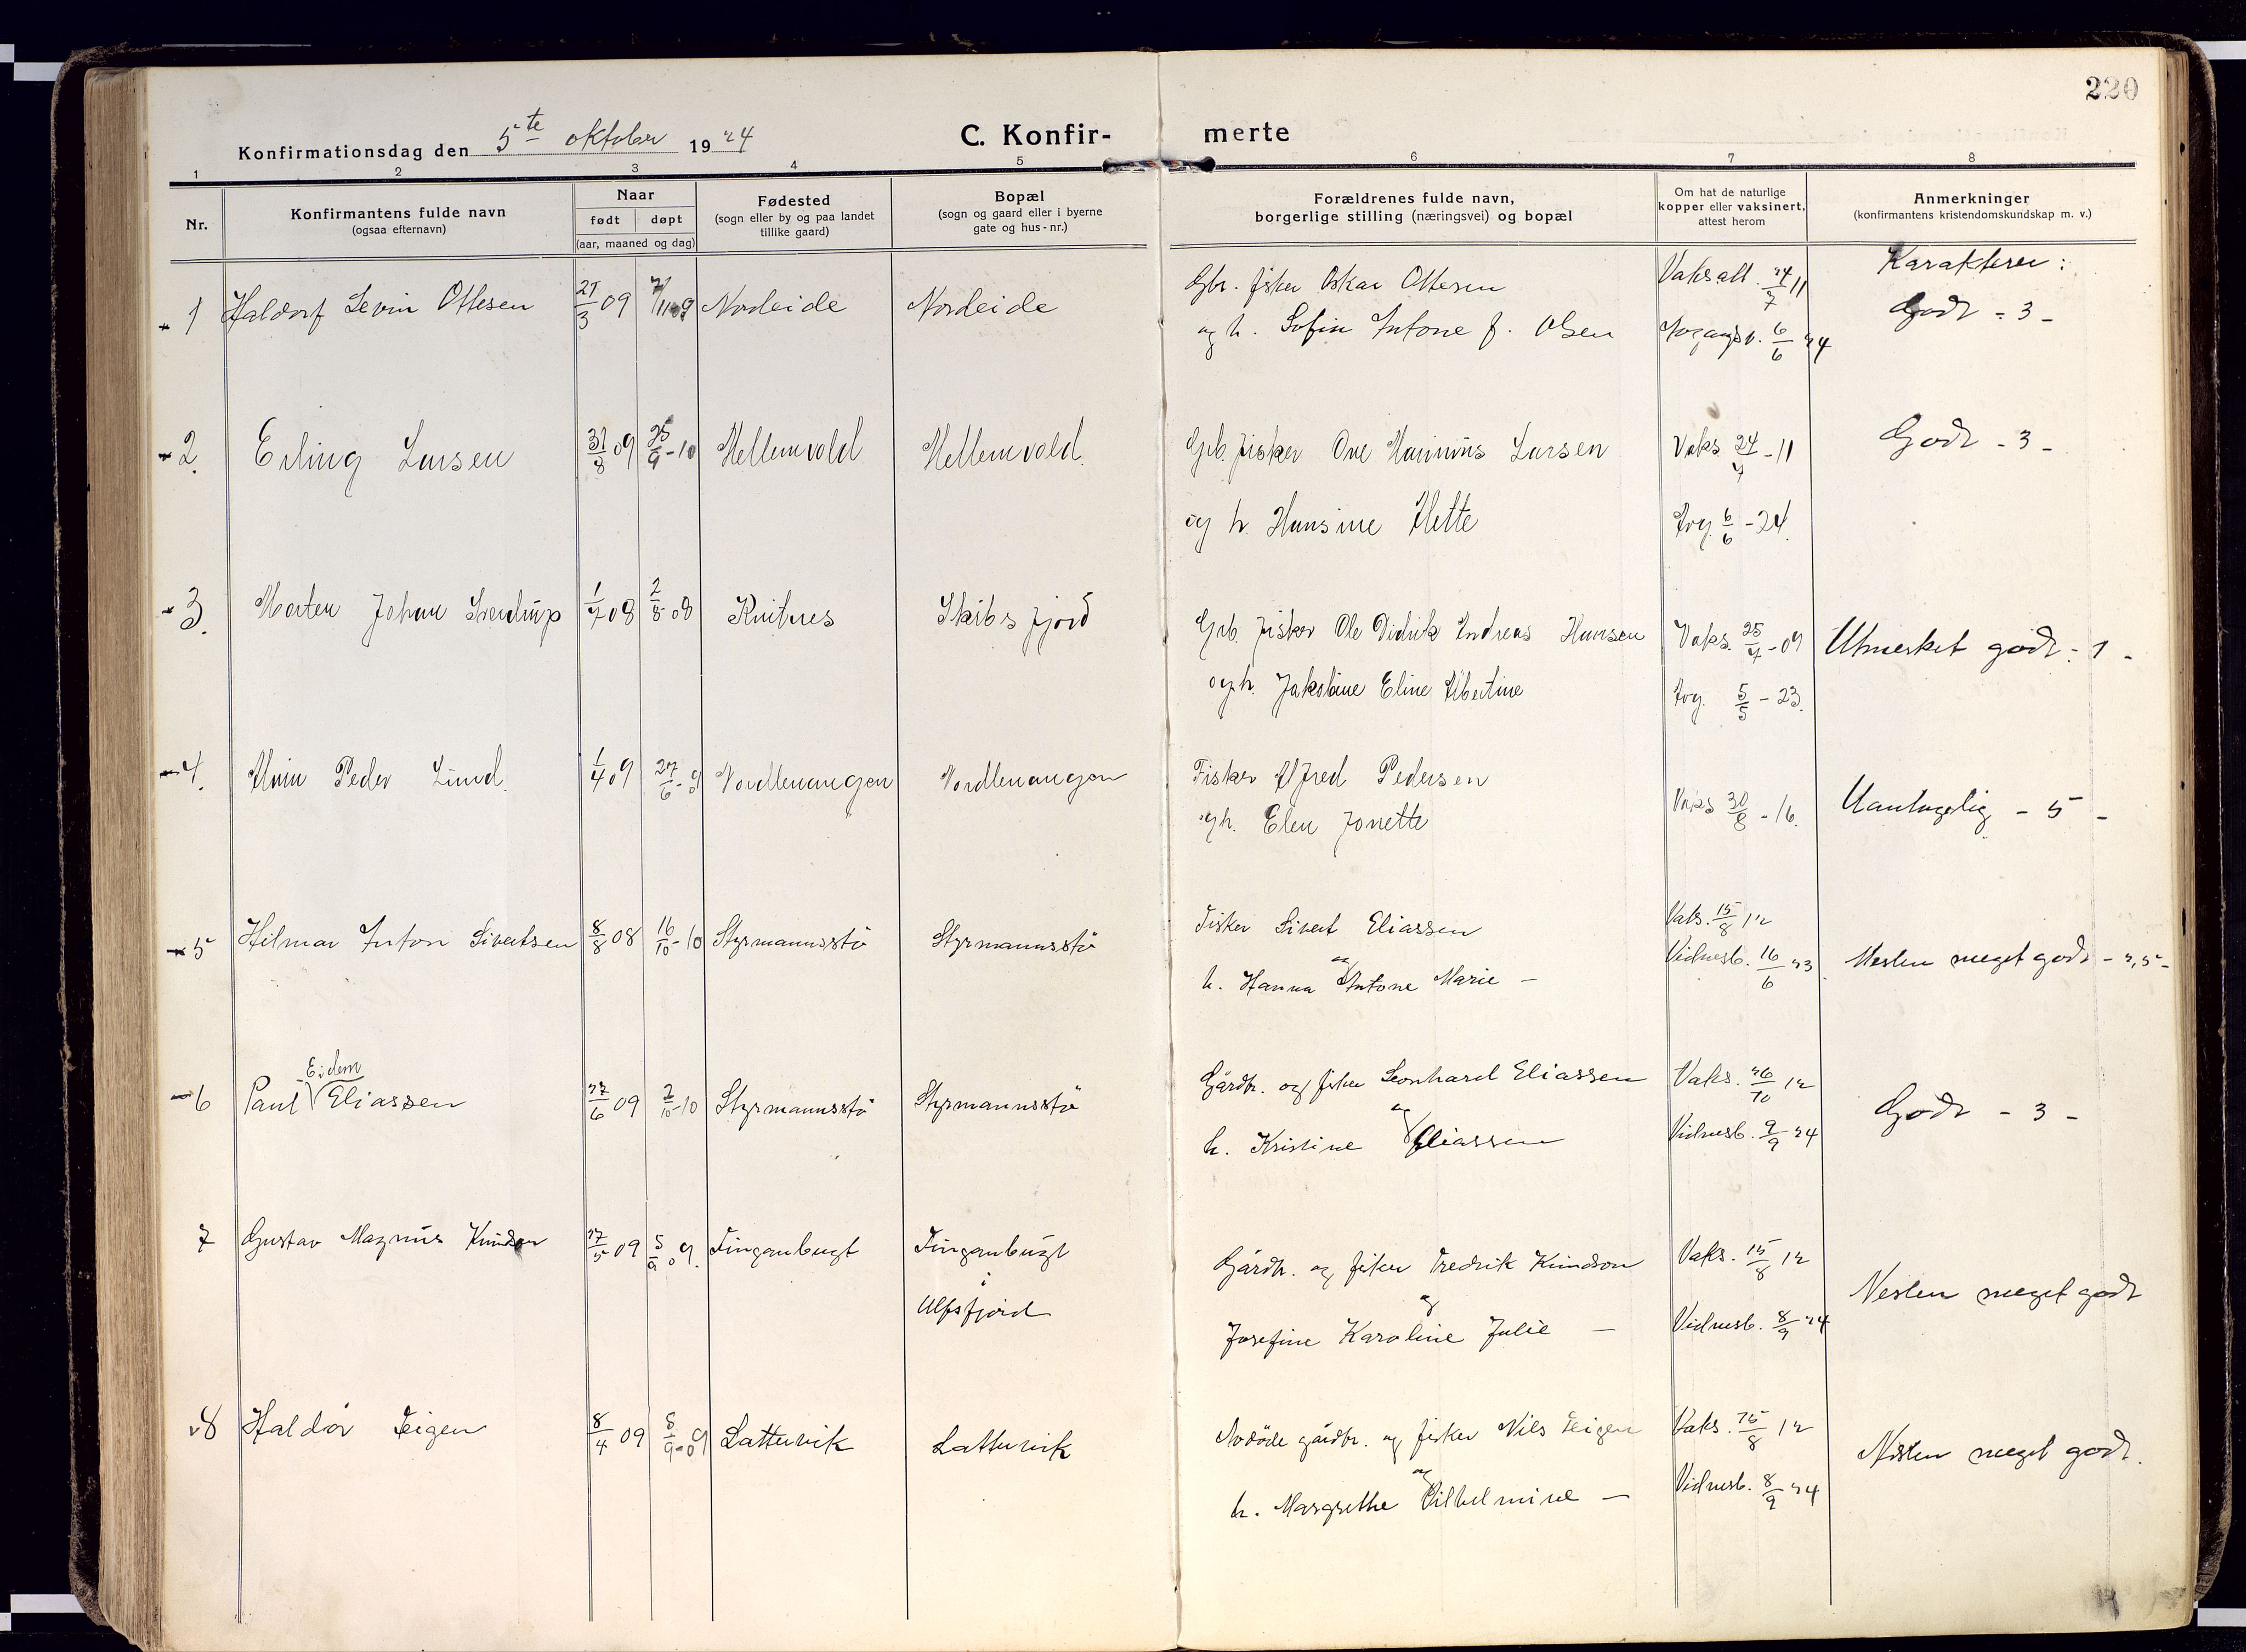 220
Konfirmationsdag den 5te oktober 1924
C. Konfir- merte
1 2 3 4 5 6 7 8
Nr.
Konfirmantens fulde navn
(ogsaa efternavn)
Naar
født døpt
(aar, maaned og dag)
Fødested
(sogn eller by og paa landet
tillike gaard)
Bopæl
(sogn og gaard eller i byerne
gate og hus-nr.)
Forældrenes fulde navn,
borgerlige stilling (næringsvei) og bopæl
Om hat de naturlige
kopper eller vaksinert,
attest herom
Anmerkninger
(konfirmantens kristendomskundskap m. v.)
Karakterer:
1 Haldorf Levin Ottesen 21/3 09 Nordeide Nordeide Gbr. fisker Oskar Ottesen Vaksatt. 24/7 11 Godt - 3 -
og h. Sofie Antone f. Olsen 6/6 24
2. Erling Larsen 31/8 09 25/9-10 Mellemvold Mellemvold. Grb. fisker Ove Marinius Larsen Vaks. 24/7-11 Godt - 3 -
og h. Hansine Mette Avg. 6/6-24.
3. Morten Johan Sverdrup 1/7 08 2/8 08 Knitnes Skibsfjord Grb. fisker Ole Didrik Andreas Hansen Vaks. 25/7-09 Utmerket godt - 1 -
og h. Jakobine Eline Albertine Avg. 5/5-23.
4. Peder Lund. 1/4 09 27/6-9 Nordlenangen Nordlenangen Fisker Alfred Pedersen Vaks 30/8-16. Uantagelig - 5 -
og h. Elen Jonette
5 Hilmar Anton Sivertsen 8/8 08 16/10-10 Styrmannsstø Styrmannsstø Fisker Sivert Eliassen Vaks. 15/8 12
og
h. Hanna Antone Marie - Vidnesb. 16/6 23 Nesten meget godt - 2,5 -
Eidem
6 Paul Eliassen 27/6 09 2/10-10 Styrmannsstø Styrmannsstø Gårdbr. og fisker Leonhard Eliassen Vaks. 26/10 12 Godt - 3 -
og
h. Kristine Eliassen Vidnesb. 9/9 24
7 Gustav Magnus Knudsen 27/5 09 5/9 09. Finganbugt Finganbugt
i
Ulfsfjord
Gårdbr. og fisker Fredrik Knudsen Vaks. 15/8 12 Nesten meget godt
og
Josefine Karoline Julie - Vidnesb. 8/9 24
8 Haldor Teigen 8/4 09 8/9-09 Lattervik Lattervik Avdøde gårdbr. og fisker Nils Teigen Vaks. 15/8 12 Nesten meget godt.
og
h. Margrethe Vilhelmine - Vidnesb. 8/9 24